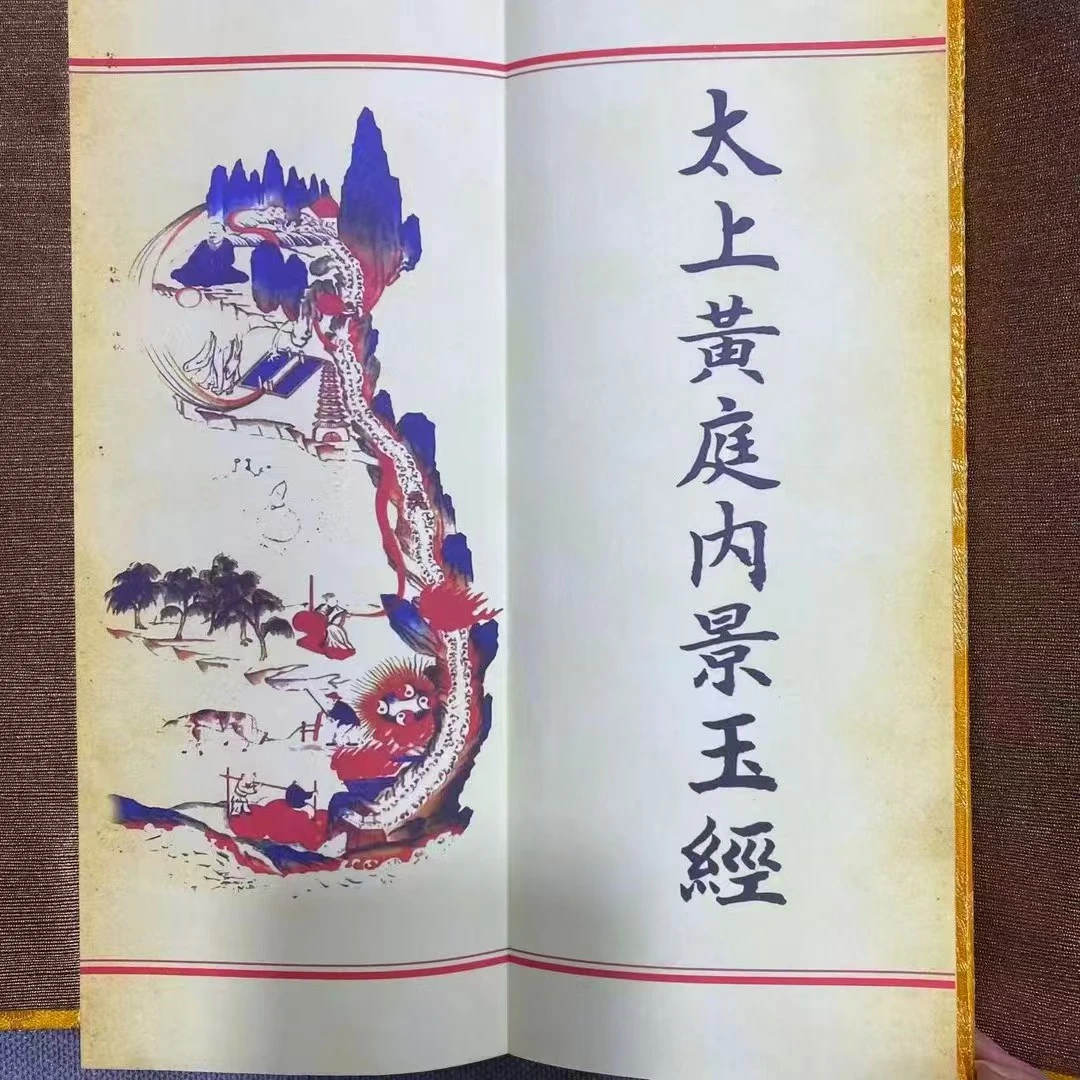 太上黃庭內景玉經